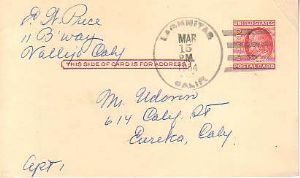 W. Price
11 B'way
Vallejo Caly
LAGUNITAS
MAR
15
PM
CALIF.
UNITED STATES
POSTAL CARD
THIS SIDE OF CARD IS FOR ADDRESS
M. Udovin
614 Caly. St
Eureka, Caly.
Apt 1